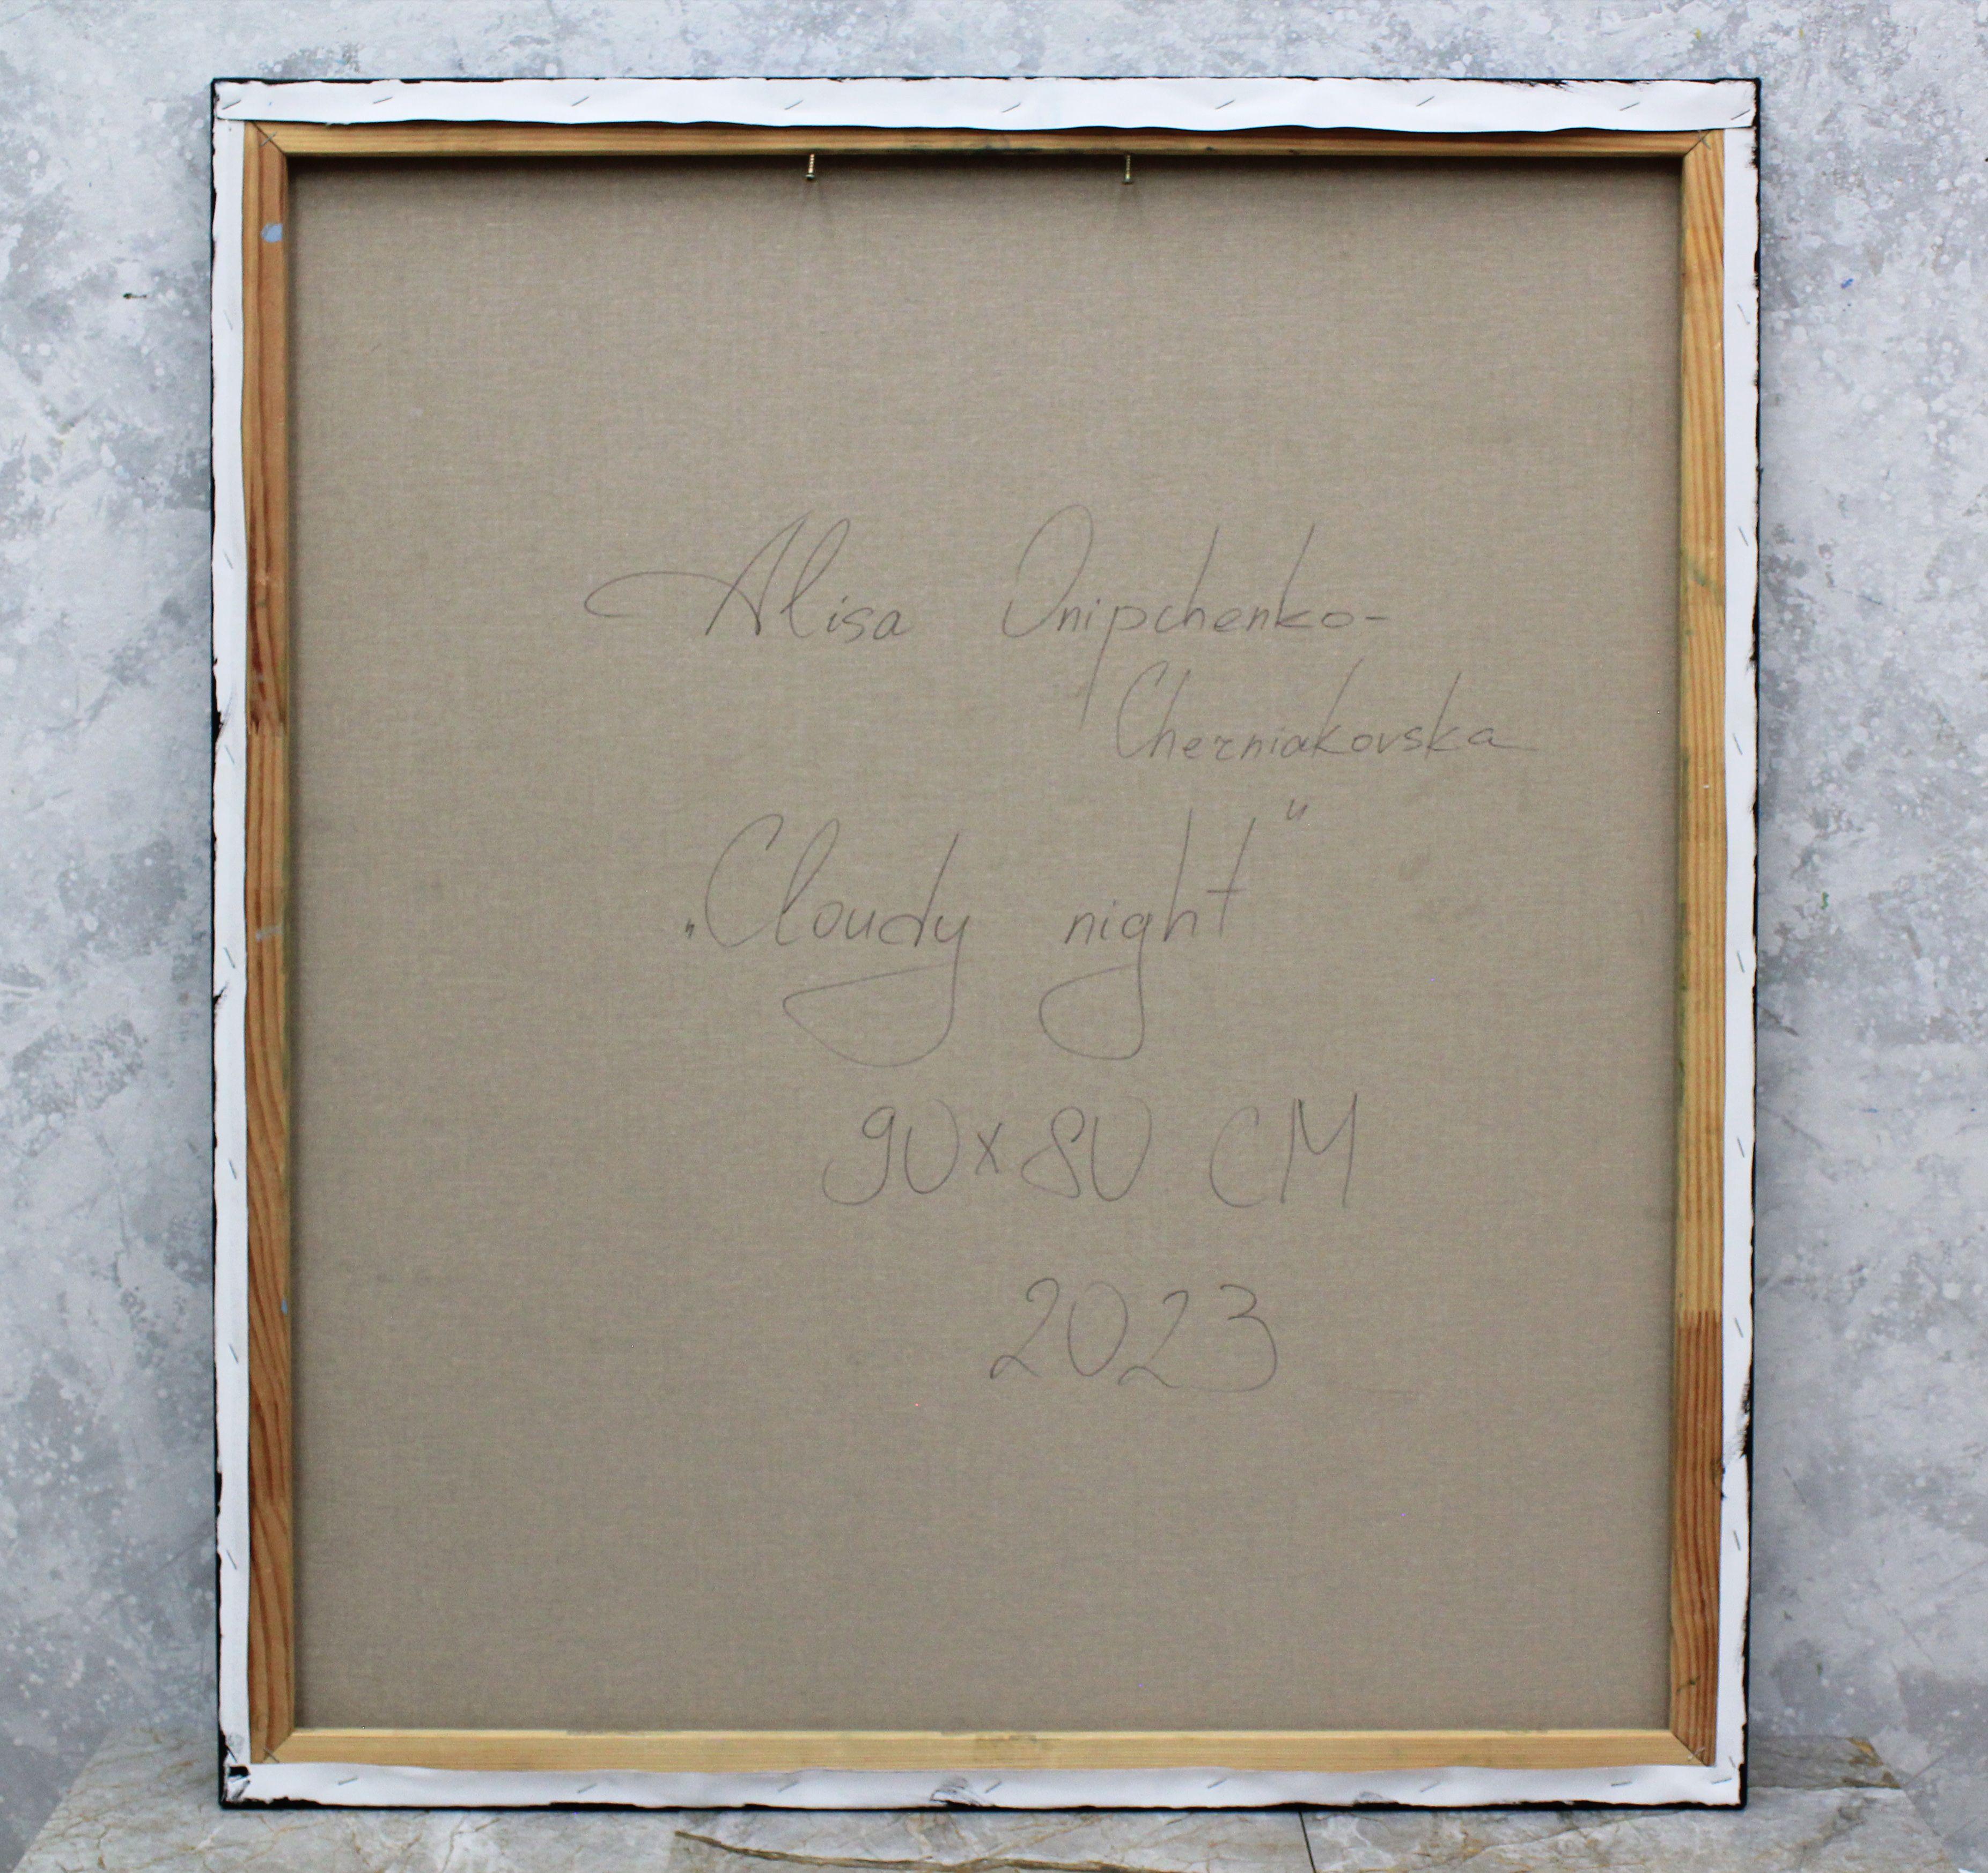 Alisa Onipchenko-
Cherniakovska
„Cloudy night“
90x80 CM
2023